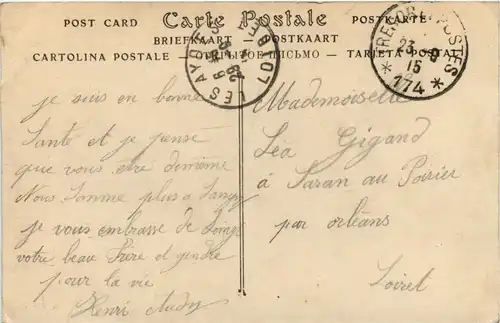 POST CARD Carte Postale POSTKARTE
BRIEFKAART POSTKAART
CARTOLINA POSTALE ПИСЬМО TARJETA POSTAL
LES AYDES
TRESOR ET POSTES
23 8
15
* 174 *
je suis en bonne
Santé et je pense
que vous etre demême
Nous somme plus a
je vous embrasse de Loing
votre beau Frère et gendre
pour la vie
Henri
Mademoiselle
Léa Gigand
à Saran au Poirier
par orléans
Loiret